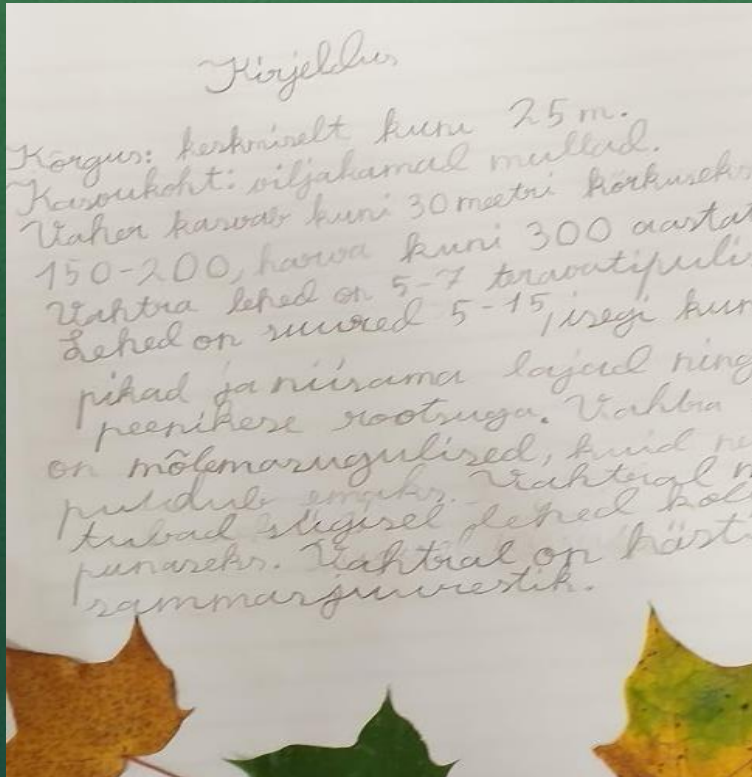 Kirjeldus
Kõrgus: keskmiselt kuni 25 m.
Kasvukoht: viljakamad mullad.
Vaher kasvab kuni 30 meetri kõrkuseks
150-200, harva kuni 300 aastat
Vahtra lehed on 5-7 teravatipuli
Lehed on suured 5-15, isegi kun
pikad ja niisama lajad ning
peenikese rootsuga. Vahtra
on mõlemasugulised, kuid
puldub emaks. Vahtral
tubad sügisel lehed kol
punaseks. Vahtral on häst
sammasjuurestik.